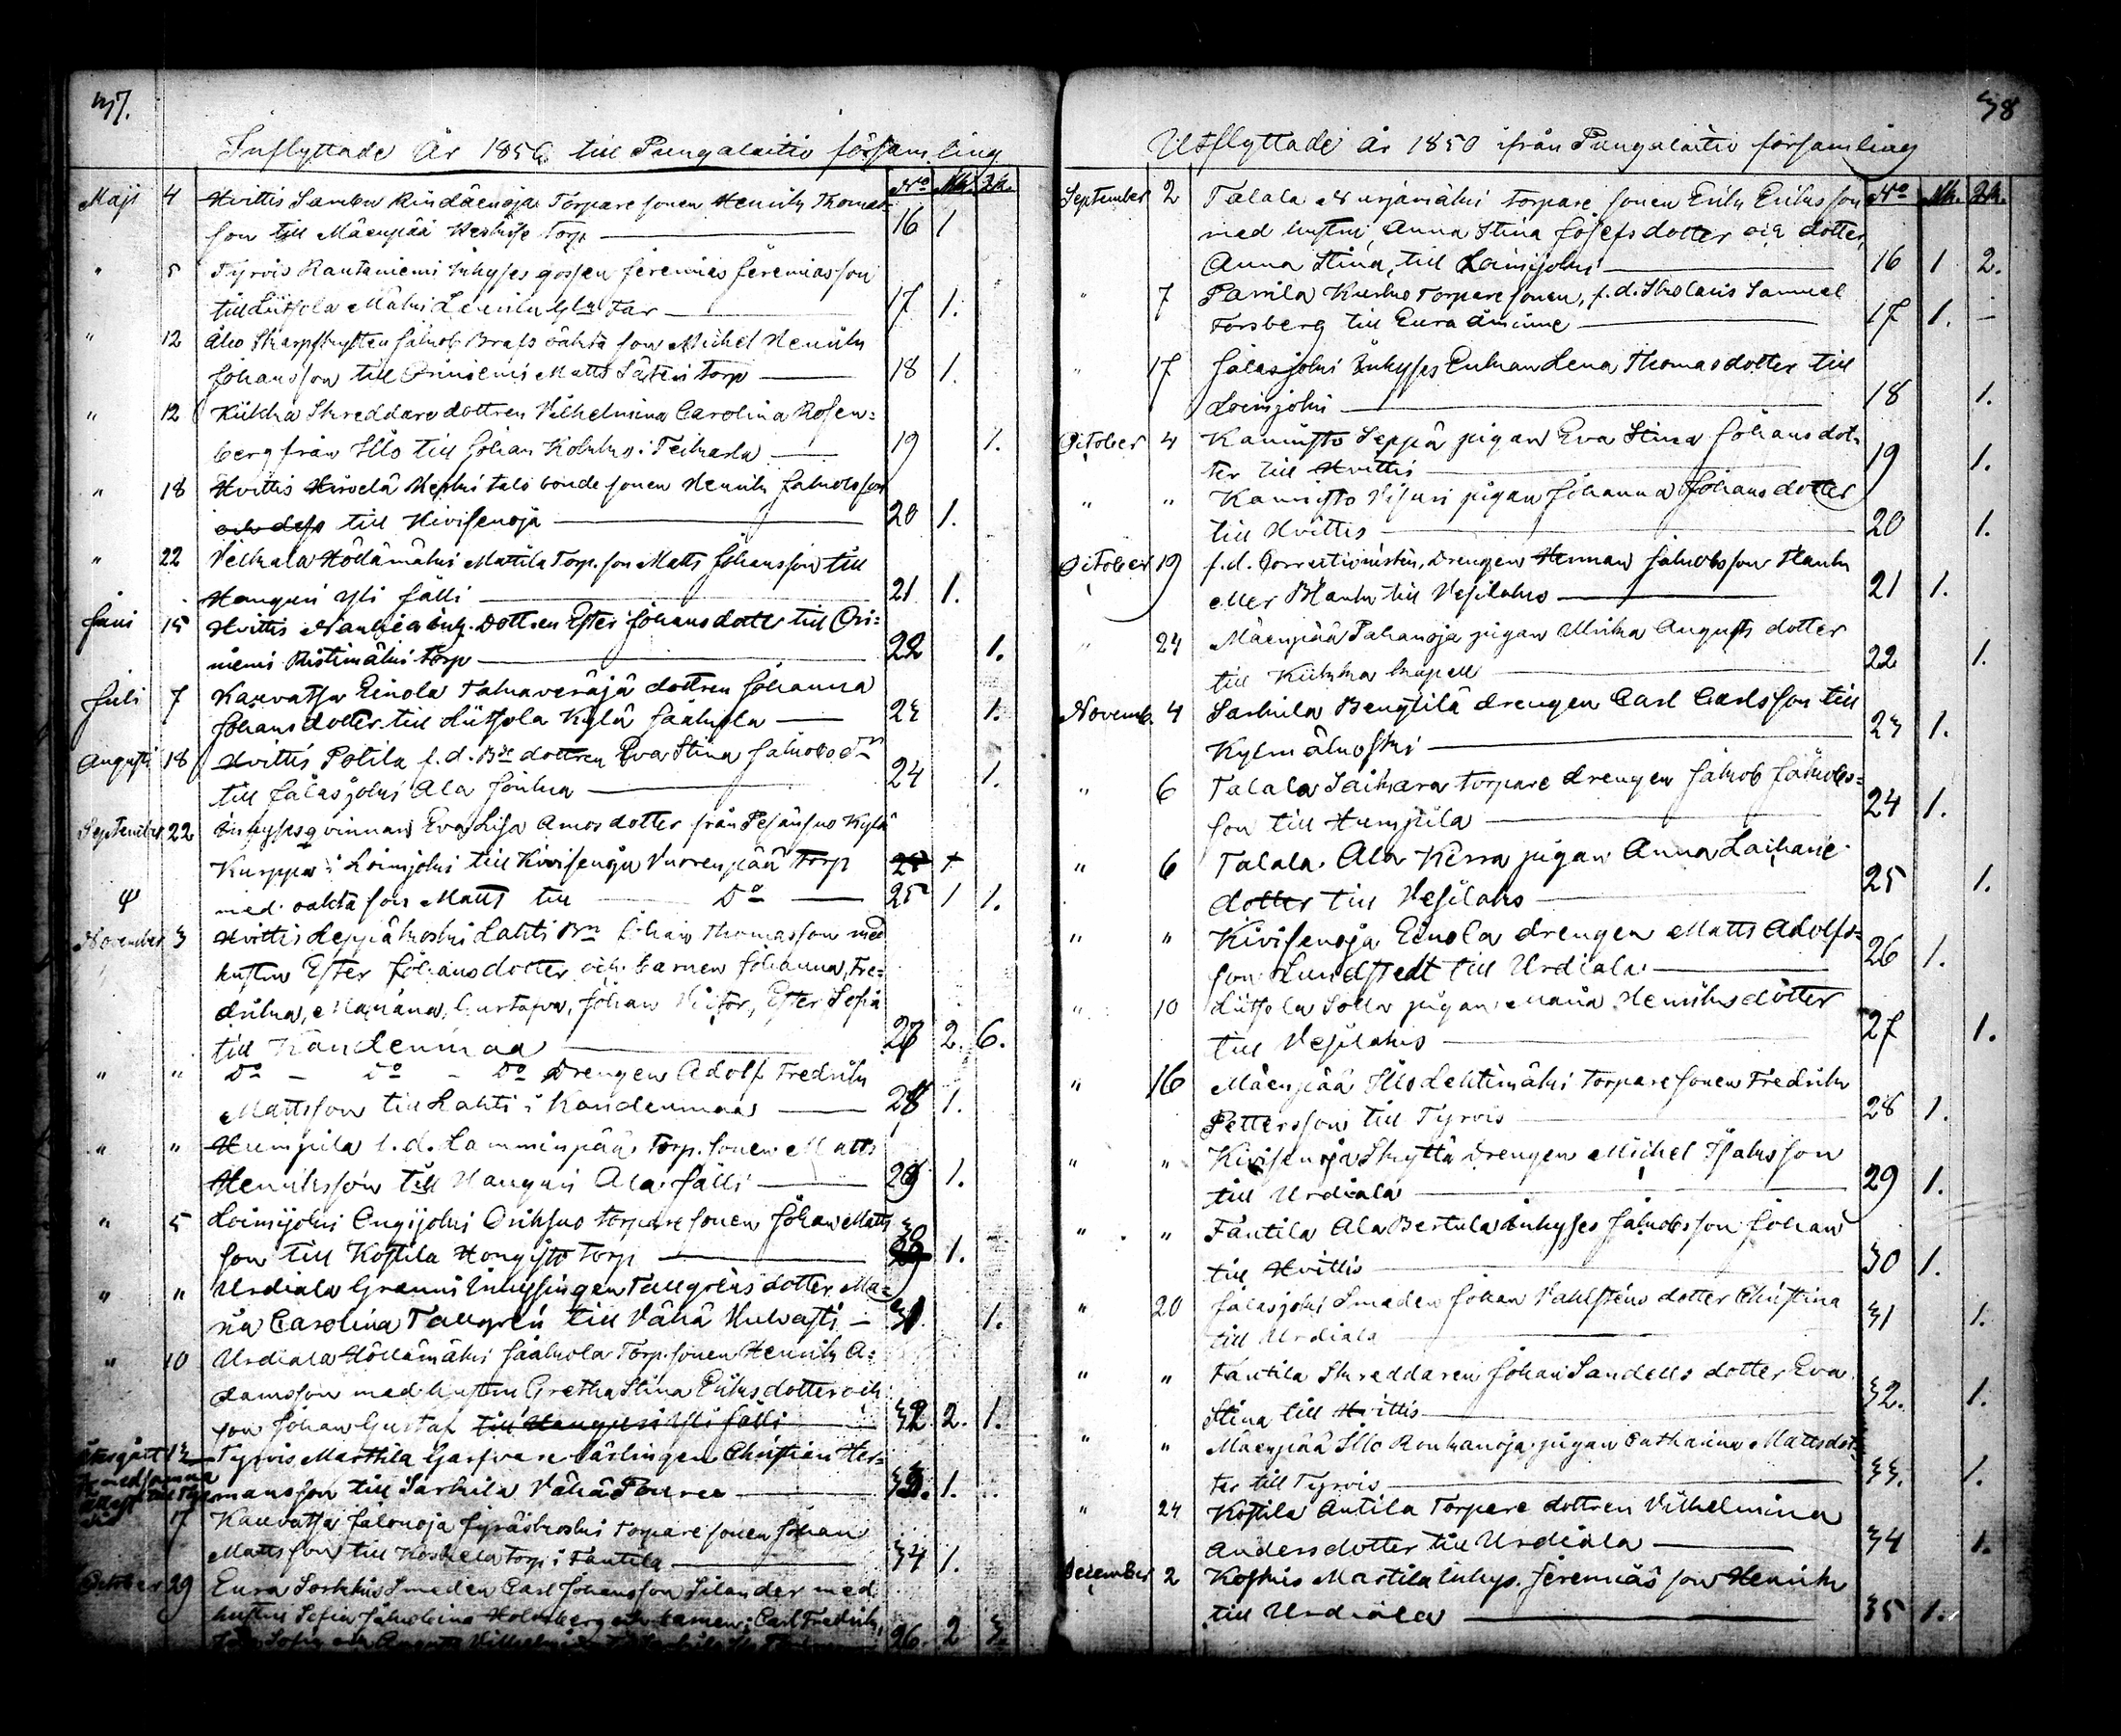 37.
Inflyttade År 1850 till Pungalaitio församling
No Mk. Qk.
Maji 4 Hvittis Sambu Rindäenoja Torpare sonen Henrik Thomas-
son till Mäenpää Torp 16 1
" 5 Tyrvis Rautaniemi Inhyses gossen Jeremias Jeremiasson
till Liitsola Mäki 17 1.
" 12 Åbo Skarpskytten Jakob oäkta son Michel Henrik
Johansson till Oriniemi Matts Torp 18 1.
" 12 Kiikka Skreddare dottren Vilhelmina Carolina Rosen=
berg från Illo till Johan i Teikarla 19 1.
" 18 Hvittis talo bonde sonen Henrik Jakobsson
och dess till Kivisenoja 20 1.
" 22 Höllämäki Mattila Torp. son Matts Johansson till
Hanguri Yli Jälli 21 1.
Juni 15 Hvittis inh. Dottren Ester Johansdotter till Ori=
niemi Ristimäki Torp 22 1.
Juli 7 Kauvatsa Einola dottren Johanna
Johansdotter till Liitsola Kylä Jaakola 23 1.
Augusti 18 Hvittis Potila f.d. Bde dottren Eva Stina Jakobsdr
till Jalasjoki Ala 24 1.
September 22 Inhyses qvinnan Eva Lisa Amosdotter från Kylä
Kurppa i Loimjoki till Kivisenoja Vuorenpää Torp 25 1
med oäkta son Matts till Do 25 1 1.
November 3 Hvittis Leppäkoski Lahti Bn Johan Thomasson med
hustru Ester Johansdotter och barnen Johanna, Fre=
drika, Mariana, Gustafva, Johan Victor, Ester Sofia
till Kandenmaa 27 2. 6.
" " Do - Do - Do Drengen Adolf Fredrik
Mattsson till Lahti i Kandenmaa 28 1.
" " Humpila Lamminpää Torp. sonen Matts
Henriksson till Hanguri Ala Jälli 29 1.
" 5 Loimijoki Torpare sonen Johan Matts
son till Kostila Hongisto Torp 30 1.
" " Urdiala Tallgréns dotter Ma=
ria Carolina Tallgrén till Vähä 31 1.
" 10 Urdiala Höllämäki Jaakola Torp. sonen Henrik A=
damsson med hustru Gretha Stina Eriksdotter och
son Johan Gustaf till Hanguri Yli Jälli 32 2. 1.
13 Tyrvis Marttila Garfvare Lärlingen Christian Her=
mansson till Sarkila Vähä 33. 1.
17 Kauvatsa Torpare sonen Johan
Mattsson till Koskela Torp i Tantila 34 1.
October 29 Eura Smeden Carl Johansson Silander med
hustru Sofia Holmberg och barnen: Carl Fredrik,
2
38
Utflyttade År 1850 ifrån Pungalaitio församling
No Mk. Qk.
September 2 Talala Nurjamäki torpare sonen Erik Eriksson
med hustru, Anna Stina Josefsdotter och dotter,
Anna Stina, till Loimijoki 16 1 2.
" 7 Torpare sonen, f.d. Skolaris Samuel
Forsberg till Eura åminne 17 1. -
" 17 Jalasjoki Inhyses Enkan Lena Thomasdotter till
Loimjoki 18 1.
October 4 Kannisto Seppä pigan Eva Stina Johansdot
ter till Hvittis 19 1.
" " Kannisto pigan Johanna Johansdotter
till Hvittis 20 1.
October 19 f.d. Correctionisten, Drengen Herman Jakobsson Hank
eller Blank till Vesilaks 21 1.
" 24 Mäenpää Pahanoja pigan Ulrika Augusts dotter
till Kiikka kapell 22 1.
Novemb. 4 Sarkila Bengtilä drengen Carl Carlsson till
Kylmäkoski 23 1.
" 6 Talala torpare drengen Jakob Jakobs=
son till Humpila 24 1.
" 6 Talala Ala Kerra pigan Anna
dotter till Vesilaks 25 1.
" " Kivisenoja Einola drengen Matts Adolfs=
son Lundstedt till Urdiala 26 1.
" 10 Liitsola pigan Maria Henriksdotter
till Vesilaks 27 1.
" 16 Mäenpää Illo Lehtimäki Torpare sonen Fredrik
Pettersson till Tyrvis 28 1.
" " Kivisenoja Skyttä Drengen Michel Isaksson
till Urdiala 29 1.
" " Tantila Ala Bertula Inhyses Jakobsson Johan
till Hvittis 30 1.
" 20 Jalasjoki Smeden Johan Vahlstens dotter Christina
till Urdiala 31 1.
" " Tantila Skreddaren Johan Sandells dotter Eva
Stina till Hvittis 32. 1.
" " Mäenpää Illo pigan Catharina Mattsdot
ter till Tyrvis 33. 1.
" 24 Kostila Antila Torpare dottren Vilhelmina
Andersdotter till Urdiala 34 1.
December 2 Koskis Martila Inhys. Jeremias son Henrik
till Urdiala 35 1.